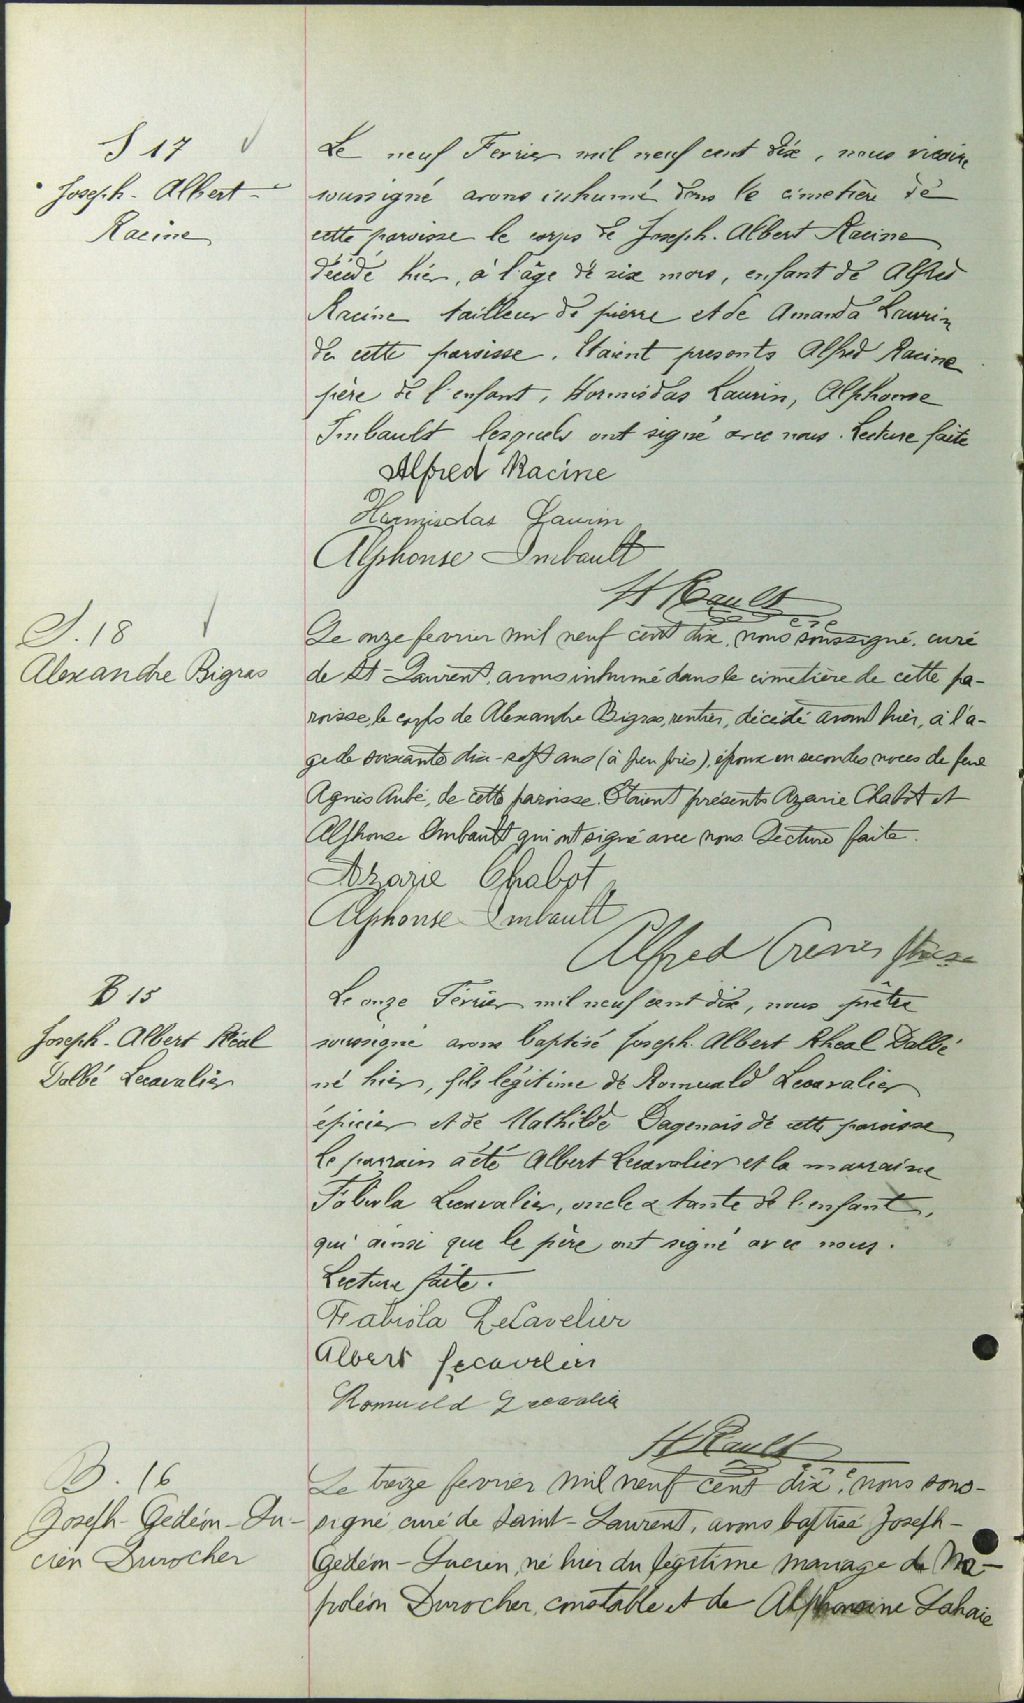 S 17
Joseph-Albert-
Racine
Le neuf Fevrier mil neuf cent dix, nous vicaire
soussigné avons inhumé dans le cimetière de
cette paroisse le corps de Joseph-Albert Racine
décédé hier, à l'âge de six mois, enfant de Alfred
Racine tailleur de pierre et de Amanda Laurin
de cette paroisse. Etaient presents Alfred Racine
père de l'enfant, Hormisdas Laurin, Alphonse
Imbault lesquels ont signé avec nous. Lecture faite
Alfred Racine
Hormisdas Laurin
Alphonse Imbault
H Rault
S. 18
Alexandre Bigras
Le onze fevrier mil neuf cent dix, nous soussigné, curé
de St-Laurent, avons inhumé dans le cimetière de cette pa-
roisse, le corps de Alexandre Bigras, rentier, décédé avant hier, à l'a-
ge de soixante dix-sept ans (à peu près), époux en secondes noces de feue
Agnès Aubé, de cette paroisse. Etaient présents Azarie Chabot et
Alphonse Imbault qui ont signé avec nous. Lecture faite.
Azarie Chabot
Alphonse Imbault
Alfred Crevier ptre
B 15
Joseph-Albert Réal
Dolbé Lecavalier
Le onze Février mil neuf cent dix, nous prêtre
soussigné avons baptisé Joseph-Albert Rheal Dolbé
né hier, fils légitime de Romuald Lecavalier
épicier et de Mathilde Dagenais de cette paroisse
Le parrain a été Albert Lecavalier et la marraine
Fabiola Lecavalier, oncle & tante de l'enfant,
qui ainsi que le père ont signé avec nous.
Lecture faite.
Fabiola LeCavelier
Albert Lecavelier
Romuald Lecavalier
H Rault
B. 16
Joseph-Gédéon-Lu-
cien Durocher
Le treize fevrier mil neuf cent dix, nous sous-
signé curé de Saint-Laurent, avons baptisé Joseph-
Gédéon-Lucien, né hier du légitime mariage de Na-
poléon Durocher, constable et de Alphonsine Lahaie